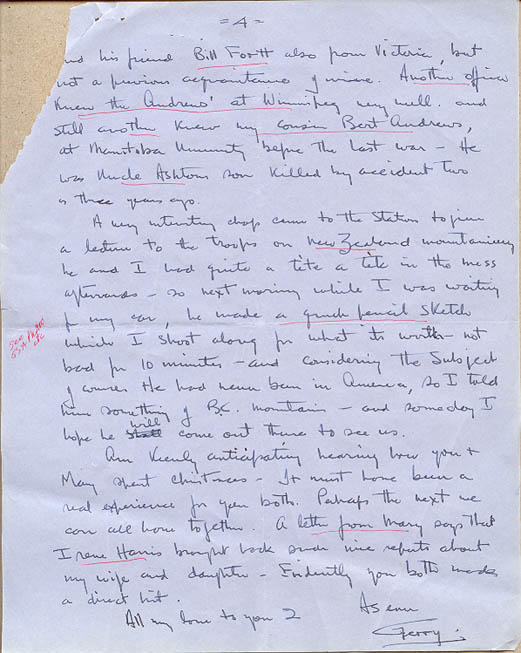 = 4 =
nd his friend Bill Fortt also from Victoria, but
not a previous acquaintance of mine. Another officer
knew the Andrews' at Winnipeg very well. and
still another knew my cousin Bert Andrews,
at Manitoba University before the last war - He
was Uncle Ashtons son killed by accident two
or three years ago.
A very interesting chap came to the station to give
a lecture to the troops on New Zealand mountaineering
he and I had quite a tête a tête in the mess
afterwards - so next morning while I was waiting
for my car, he made a quick pencil sketch
which I shoot along for what its worth - not
bad for 10 minutes - and considering the subject
of course. He had never been in America, so I told
him something of B.C. mountains - and someday I
hope he will come out there to see us.
Am keenly anticipating hearing how you +
Mary spent Christmas - It must have been a
real experience for you both. Perhaps the next we
can all have together. A letter from Mary says that
Irene Harris brought back such nice reports about
my wife and daughter - Evidently you both made
a direct hit.
All my love to you 2
As ever
Gerry.
see